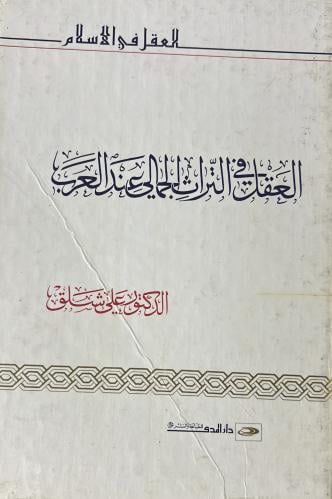 العقل في الإسلام
العقل في التراث الجمالي عند العرب
الدكتور علي شلق
دار المدى